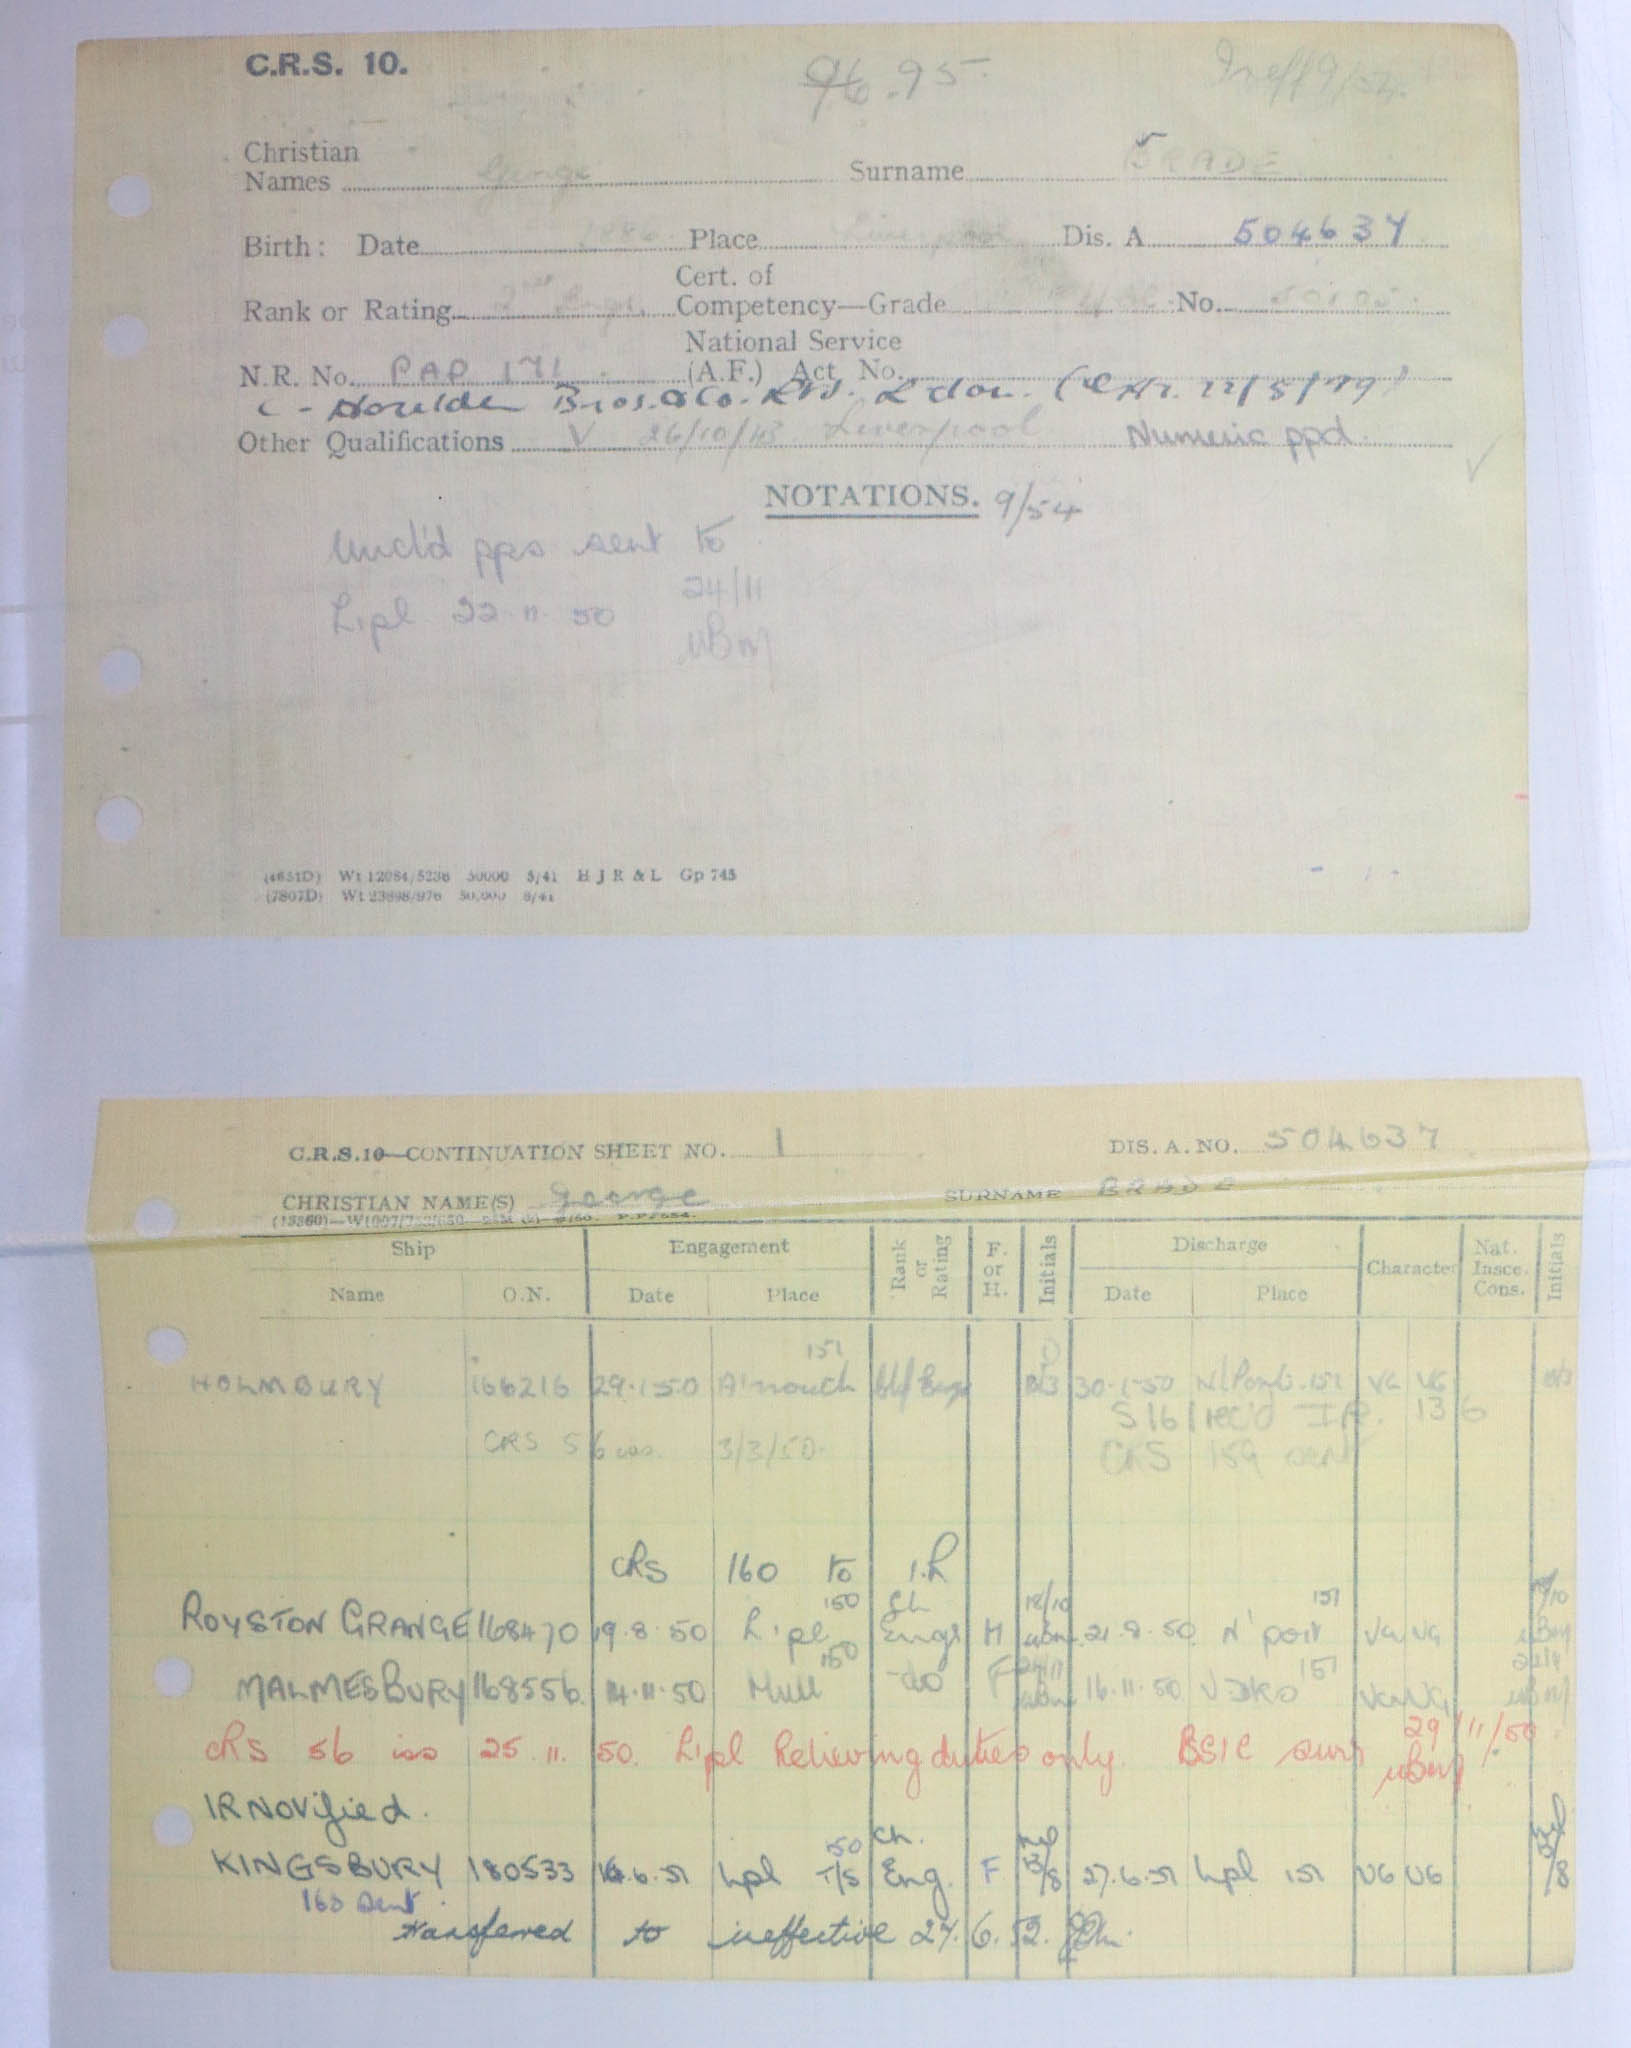 C.R.S. 10. 96.95 Ineff 9/54.
Christian
Names George Surname BRADE
Birth: Date 1886 Place Liverpool Dis. A 504637
Cert. of
Rank or Rating 2nd Engr. Competency—Grade No. 50105.
National Service
N.R. No. PAP 171 (A.F.) Act No.
C - Houlder Bros. & Co. Ltd. Ldon.
Other Qualifications V 26/10/43 Liverpool Numeric ppd.
NOTATIONS. 9/54
Uncl'd pps sent to
24/11
L'pl 22.11.50
uBm
(4651D) Wt 12084/5236 50000 5/41 H J R & L Gp 745
(7807D) Wt 23898/976 50,000 8/41
C.R.S.10—CONTINUATION SHEET NO. 1 DIS. A. NO. 504637
CHRISTIAN NAME(S) George SURNAME BRADE
Ship Engagement Rank or Rating F. or H. Initials Discharge Character Nat. Insce. Cons. Initials
Name O.N. Date Place Date Place
151
HOLMBURY 166216 29.1.50 30.1.50 151 VG VG
S16/rec'd 136
CRS 56 iss. 3/3/50. CRS 159 sent
CRS 160 to I.R.
150 Ch 18/10 151
ROYSTON GRANGE 168470 19.8.50 L'pl Engr H uBm 21.8.50 N'port VG VG uBm
150 24/11 151
MALMESBURY 168556 14.11.50 Hull -do- F uBm 16.11.50 VG VG uBm
CRS 56 iss 25.11.50. L'pl Relieving duties only. BSIC 29/11/50.
uBm
IR Notified.
50 Ch.
KINGSBURY 180533 6.51 Lpl T/S Eng. F 13/8 27.6.51 Lpl 151 VG VG
sent
transferred to ineffective 24.6.52.